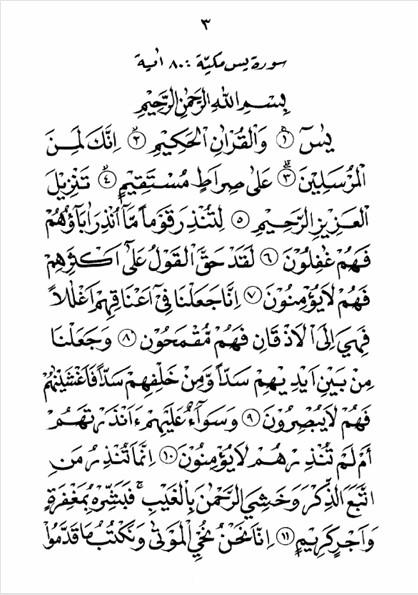 ٣
سورة يس مكية ٨٠٠ اٰية
بِسْمِ اللّٰهِ الرَّحْمٰنِ الرَّحِيْمِ
يٰسٓ ﴿١﴾ وَالْقُرْاٰنِ الْحَكِيْمِ ﴿٢﴾ اِنَّكَ لَمِنَ
الْمُرْسَلِيْنَ ﴿٣﴾ عَلٰى صِرَاطٍ مُسْتَقِيْمٍ ﴿٤﴾ تَنْزِيْلَ
الْعَزِيْزِ الرَّحِيْمِ ﴿٥﴾ لِتُنْذِرَ قَوْمًا مَّآ اُنْذِرَ اٰبَآؤُهُمْ
فَهُمْ غٰفِلُوْنَ ﴿٦﴾ لَقَدْ حَقَّ الْقَوْلُ عَلٰٓى اَكْثَرِهِمْ
فَهُمْ لَايُؤْمِنُوْنَ ﴿٧﴾ اِنَّا جَعَلْنَا فِيْٓ اَعْنَاقِهِمْ اَغْلٰلًا
فَهِيَ اِلَى الْاَذْقَانِ فَهُمْ مُّقْمَحُوْنَ ﴿٨﴾ وَجَعَلْنَا
مِنْ بَيْنِ اَيْدِيْهِمْ سَدًّا وَّمِنْ خَلْفِهِمْ سَدًّا فَاَغْشَيْنٰهُمْ
فَهُمْ لَايُبْصِرُوْنَ ﴿٩﴾ وَسَوَآءٌ عَلَيْهِمْ ءَاَنْذَرْتَهُمْ
اَمْ لَمْ تُنْذِرْهُمْ لَايُؤْمِنُوْنَ ﴿١٠﴾ اِنَّمَا تُنْذِرُ مَنِ
اتَّبَعَ الذِّكْرَ وَخَشِيَ الرَّحْمٰنَ بِالْغَيْبِ ۚ فَبَشِّرْهُ بِمَغْفِرَةٍ
وَاَجْرٍ كَرِيْمٍ ﴿١١﴾ اِنَّا نَحْنُ نُحْيِ الْمَوْتٰى وَنَكْتُبُ مَا قَدَّمُوْا